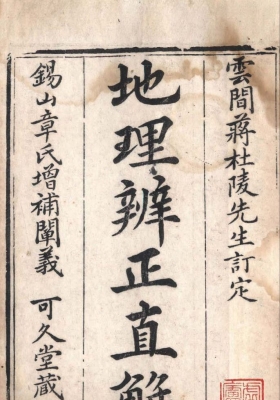 雲間蔣杜陵先生訂定
地理辨正直解
錫山章氏增補闡義 可久堂蔵